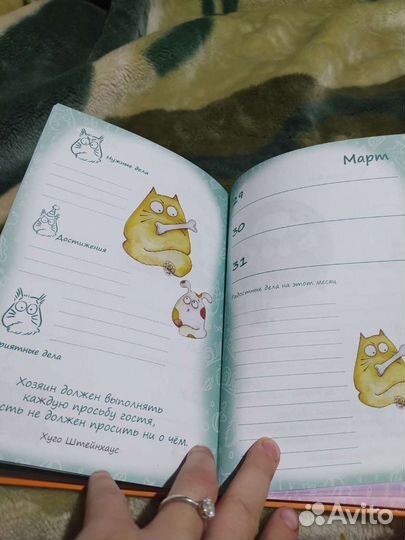 Нужные дела
Достижения
риятные дела
Хозяин должен выполнять
каждую просьбу гостя,
сть не должен просить ни о чём.
Хуго Штейнхаус
Март
29
30
31
Радостные дела на этот месяц
Avito